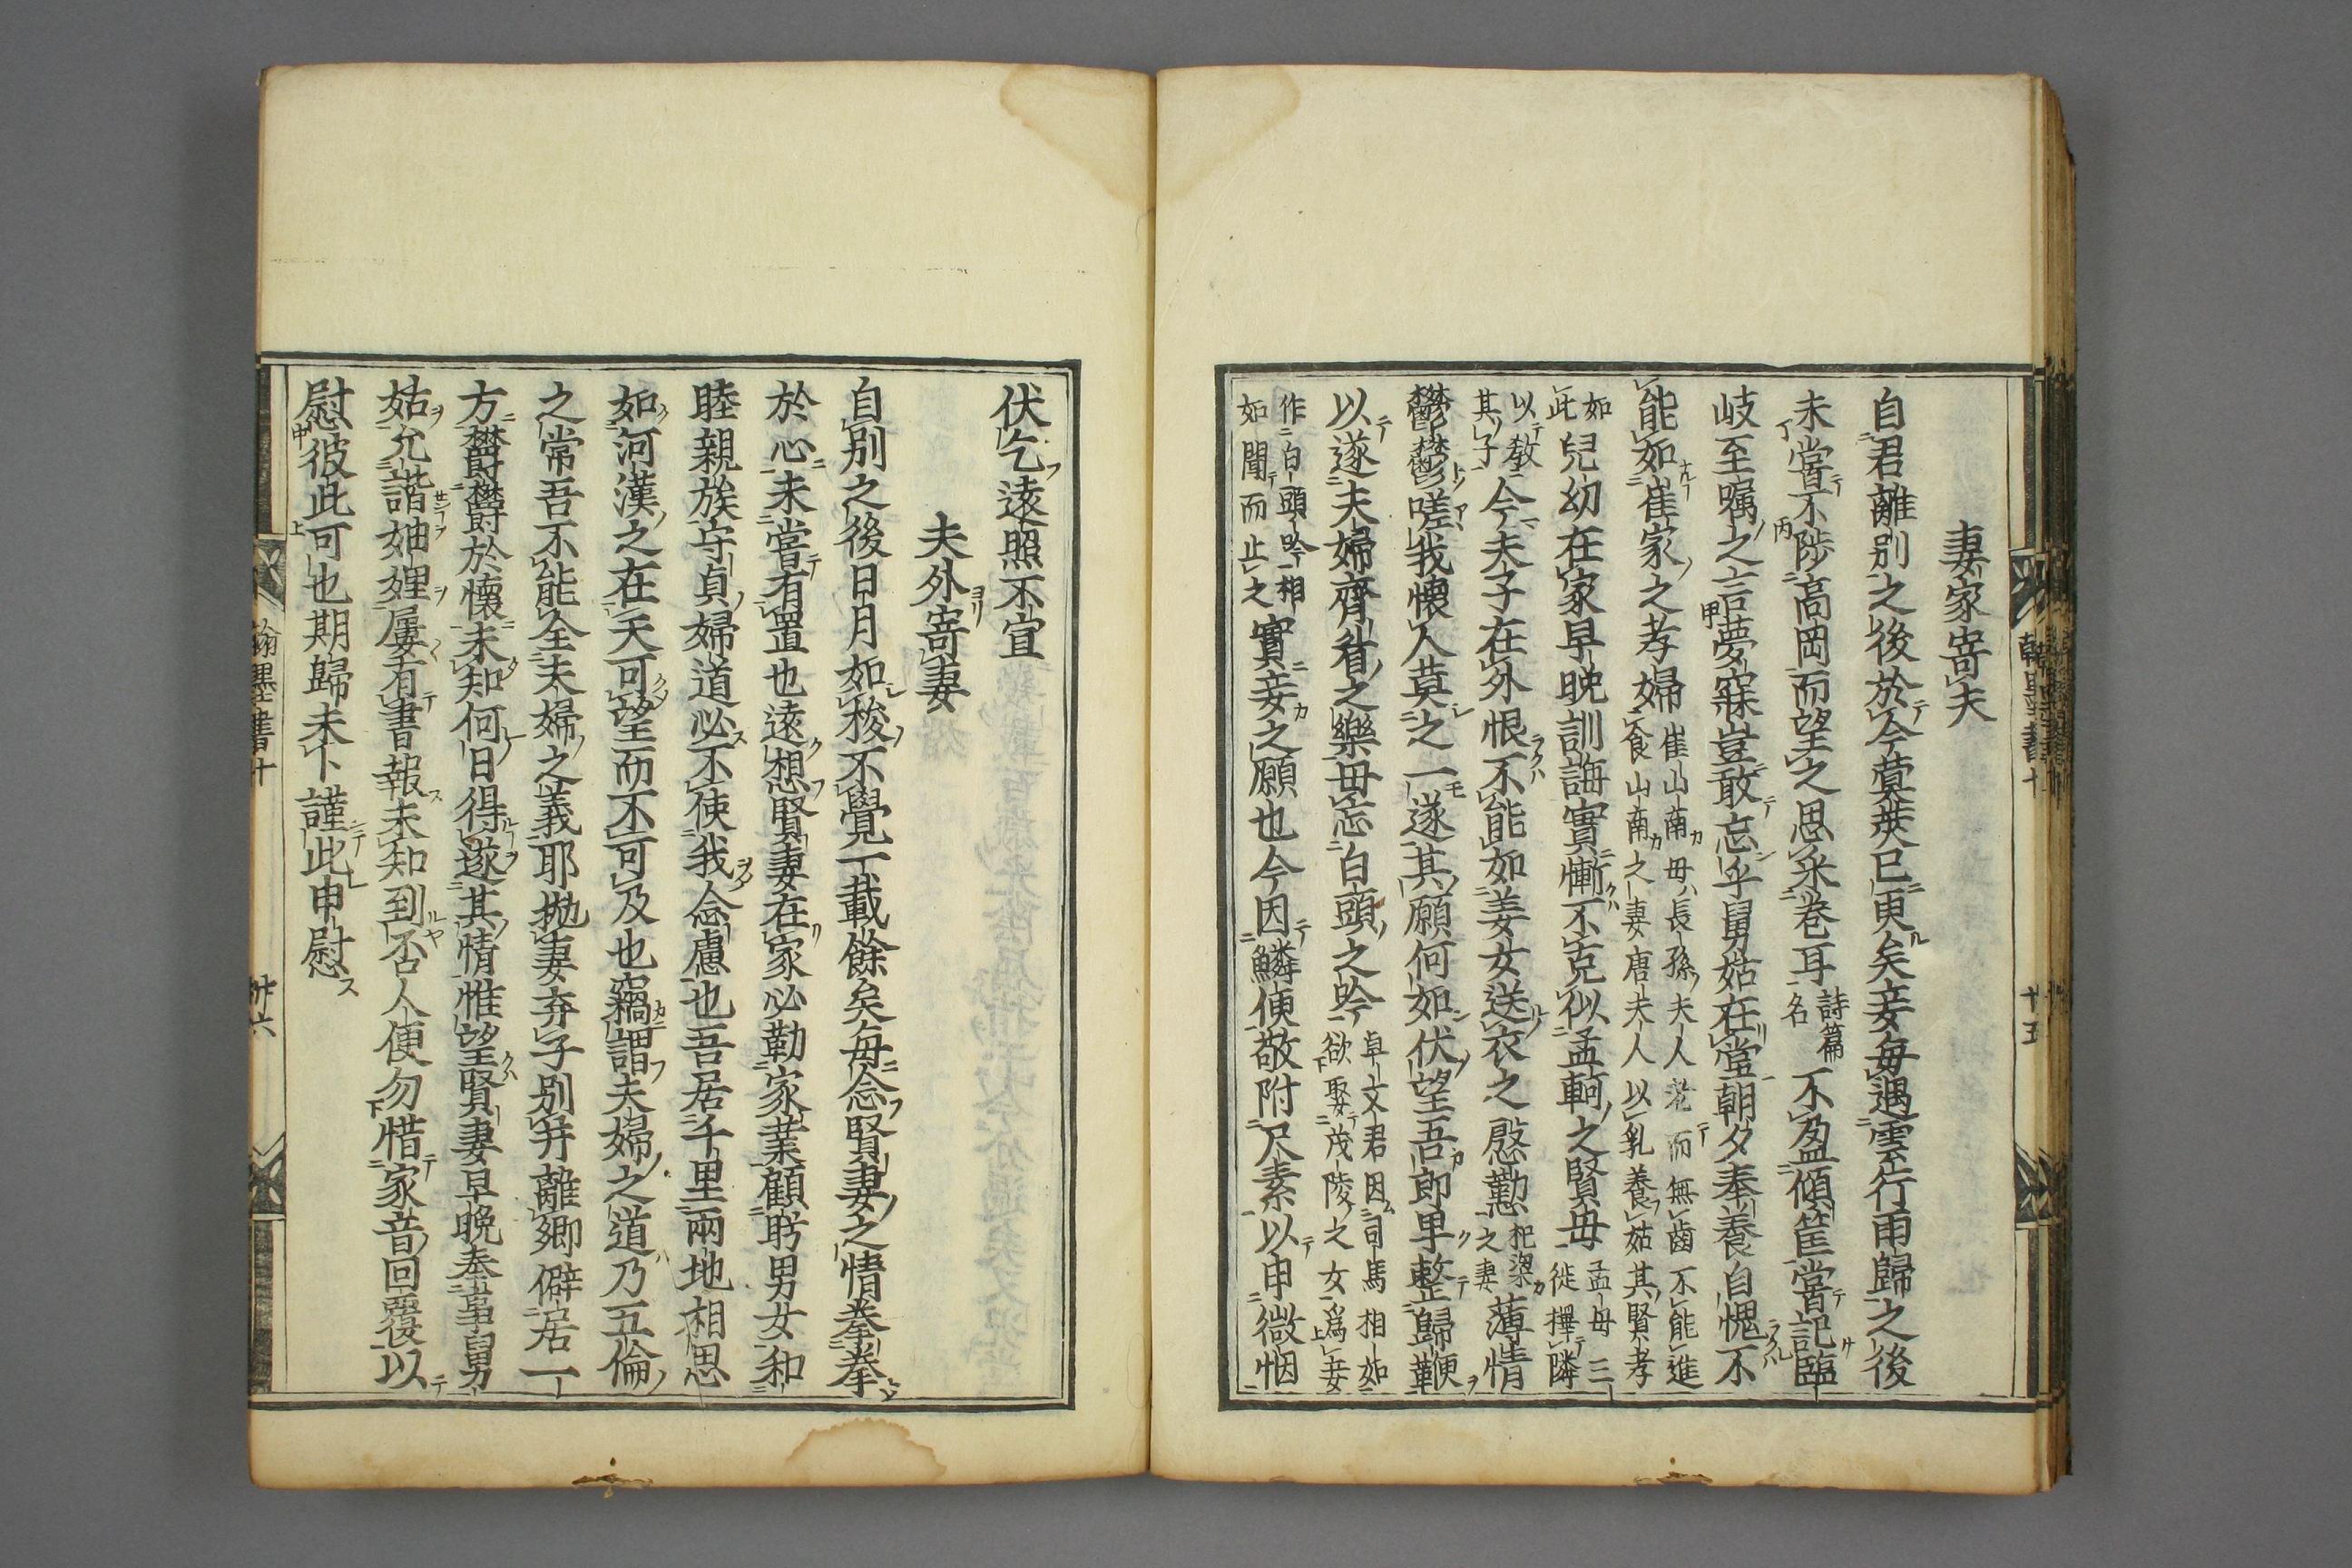 妻家寄夫
自君離別之後於今蓂莢已更矣妾每遇雲行雨歸之後
未嘗不陟高岡而望之思采卷耳詩篇名不盈傾筐嘗記臨
岐至囑之言夢寐豈敢忘乎舅姑在堂朝夕奉養自愧不
能如崔家之孝婦崔山南母長孫夫人老而無齒不能進
食山南之妻唐夫人以乳養姑其賢孝
如此兒幼在家早晚訓誨實慚不克似孟軻之賢母孟母三徙擇隣
以敎其子今夫子在外恨不能如姜女送衣之慇懃杞梁之妻薄情
鬱鬱嗟我懷人莫之一遂其願何如伏望吾郎早整歸鞭
以遂夫婦齊眉之樂毋忘白頭之吟卓文君因司馬相如欲娶茂陵之女爲妾
作白頭吟相如聞而止之實妾之願也今因鱗便敬附尺素以申微悃
翰墨書十
十五
伏乞遠照不宣
夫外寄妻
自別之後日月如梭不覺一載餘矣每念賢妻之情拳拳
於心未嘗有置也遠想賢妻在家必勤家業顧盻男女和
睦親族守貞婦道必不使我念慮也吾居千里兩地相思
如河漢之在天可望而不可及也竊謂夫婦之道乃五倫
之常吾不能全夫婦之義耶抛妻弃子別井離鄉僻居一
方欝欝於懷未知何日得遂其情惟望賢妻早晚奉事舅
姑允諧妯娌屢有書報未知到否人便勿惜家音回覆以
慰彼此可也期歸未卜謹此申慰
翰墨書十
卅六